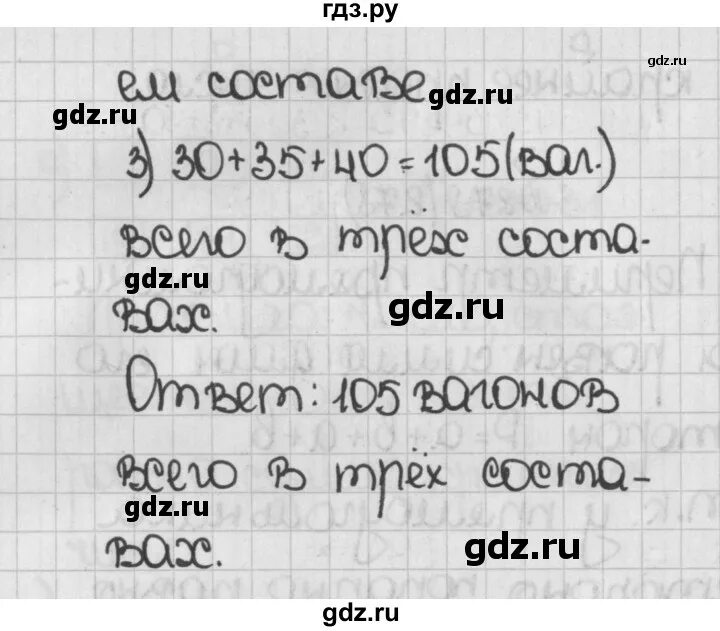 гдз.ру
gdz.ru
ем составе
gdz.ru
gdz.ru
3) 30+35+40=105(ваг.)
всего в трёх соста-
gdz.ru
gdz.ru
вах.
Ответ: 105 вагонов
всего в трёх соста-
gdz.ru
вах.
gdz.ru
gdz.ru